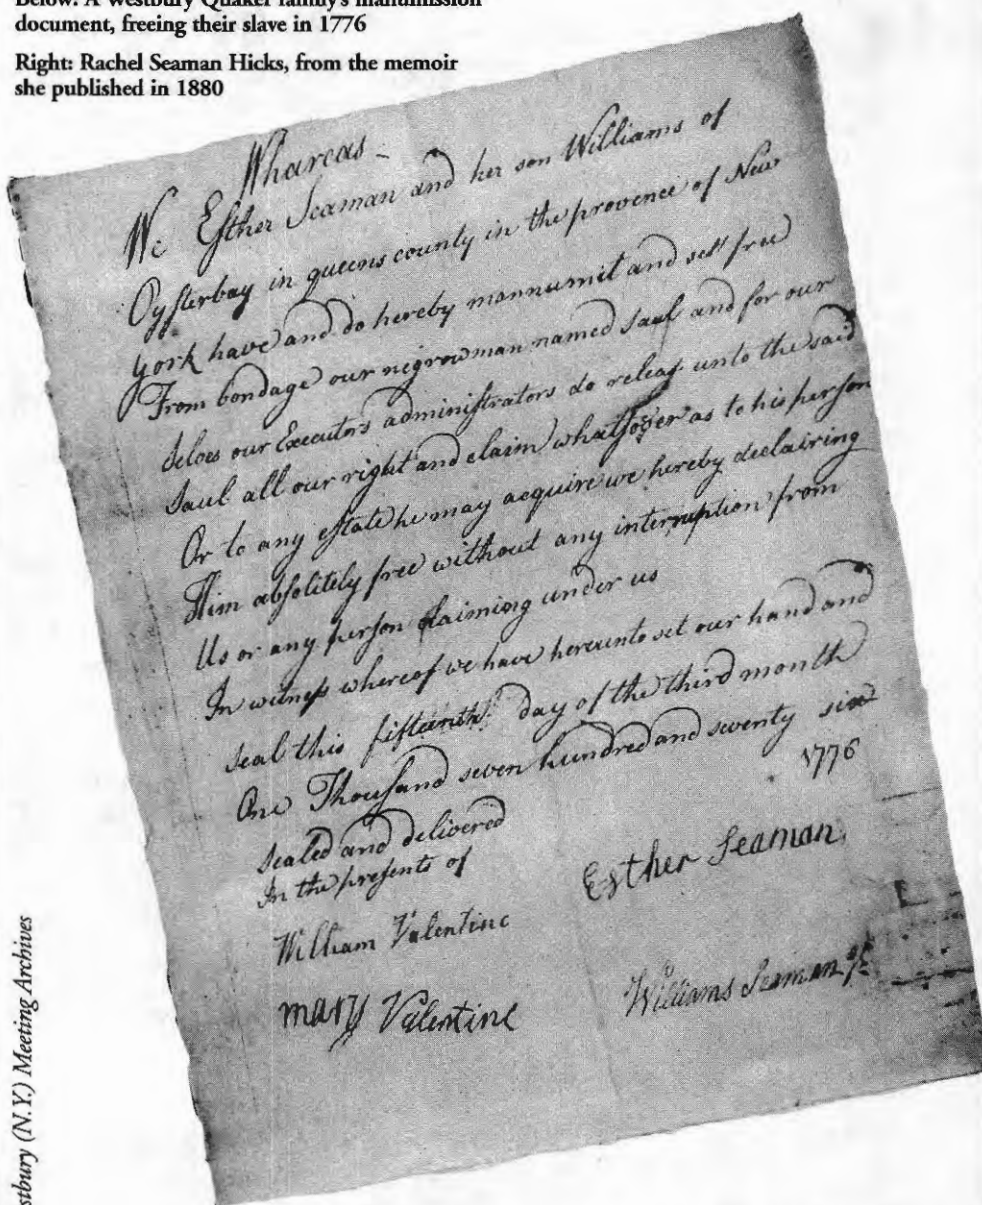 Below: A Westbury Quaker family's manumission
document, freeing their slave in 1776
Right: Rachel Seaman Hicks, from the memoir
she published in 1880
Whareas
We Esther Seaman and her son Williams of
Oysterbay in queens county in the provence of New
york have and do hereby mannumit and sett free
From bondage our negrow man named Saul and for our
selves our Executors administrators do releas unto the said
Saul all our right and claim whatsoever as to his person
Or to any estate he may acquire we hereby declairing
Him absolitely free without any interruption from
Us or any person claiming under us
In witness whereof we have hereunto set our hand and
seal this fifteenth day of the third month
One Thousand seven hundred and seventy six
1776
Sealed and delivered
In the presents of
Esther Seaman
William Valentine
Williams Seaman
mary Valentine
stbury (N.Y.) Meeting Archives